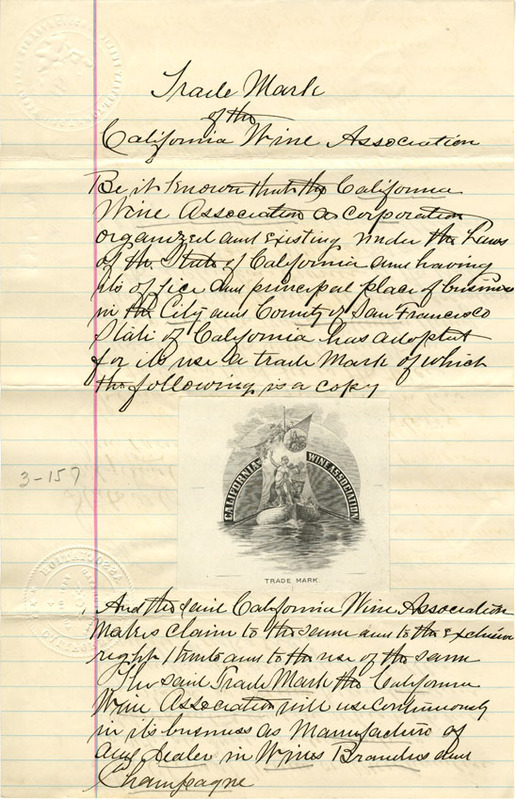 Trade Mark
of the
California Wine Association
Be it known that the California
Wine Association a corporation
organized and existing under the Laws
of the State of California and having
its office and principal place of business
in the City and County of San Francisco
State of California has adopted
for its use a trade Mark of which
the following is a copy
CALIFORNIA WINE ASSOCIATION
3-157
TRADE MARK
And the said California Wine Association
makes claim to the same and to the exclusive
right thereto and to the use of the same
The said Trade Mark the California
Wine Association will use continuously
in its business as Manufacturer of
and dealer in Wines Brandies and
Champagne